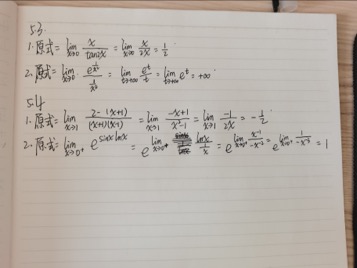 5.3
1. 原式 = lim x→0 x/tan2x = lim x→0 x/2x = 1/2
2. 原式 = lim x→0 e^(1/x²)/(1/x²) = lim t→+∞ e^t/t = lim t→+∞ e^t = +∞
5.4
1. 原式 = lim x→1 2-(x+1)/(x+1)(x-1) = lim x→1 -x+1/x²-1 = lim x→1 -1/2x = -1/2
2. 原式 = lim x→0⁺ e^(sinx lnx) = e^(lim x→0⁺ lnx/(1/x)) = e^(lim x→0⁺ x⁻¹/-x⁻²) = e^(lim x→0⁺ 1/-x⁻¹) = 1